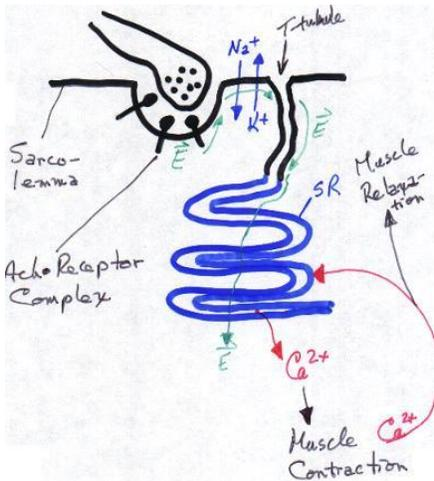 T-tubule
Na+
K+
E
E
Sarco-
lemma
SR
Muscle
Relaxa-
tion
Ach Receptor
Complex
E
Ca2+
Ca2+
Muscle
Contraction